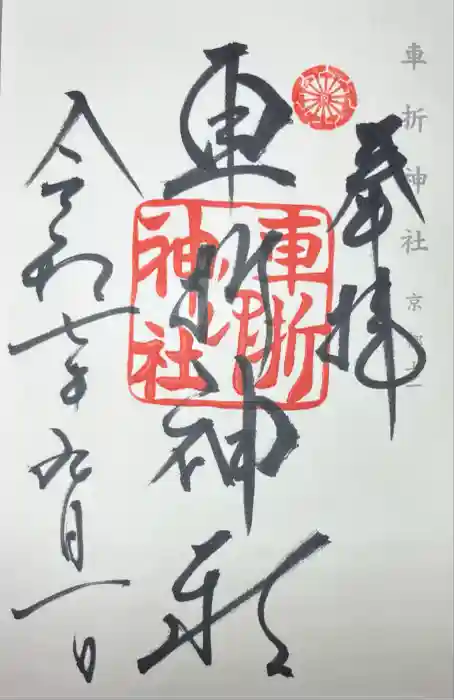 車折神社 京都
奉拝
車折神社
車折神社
令和七年九月一日